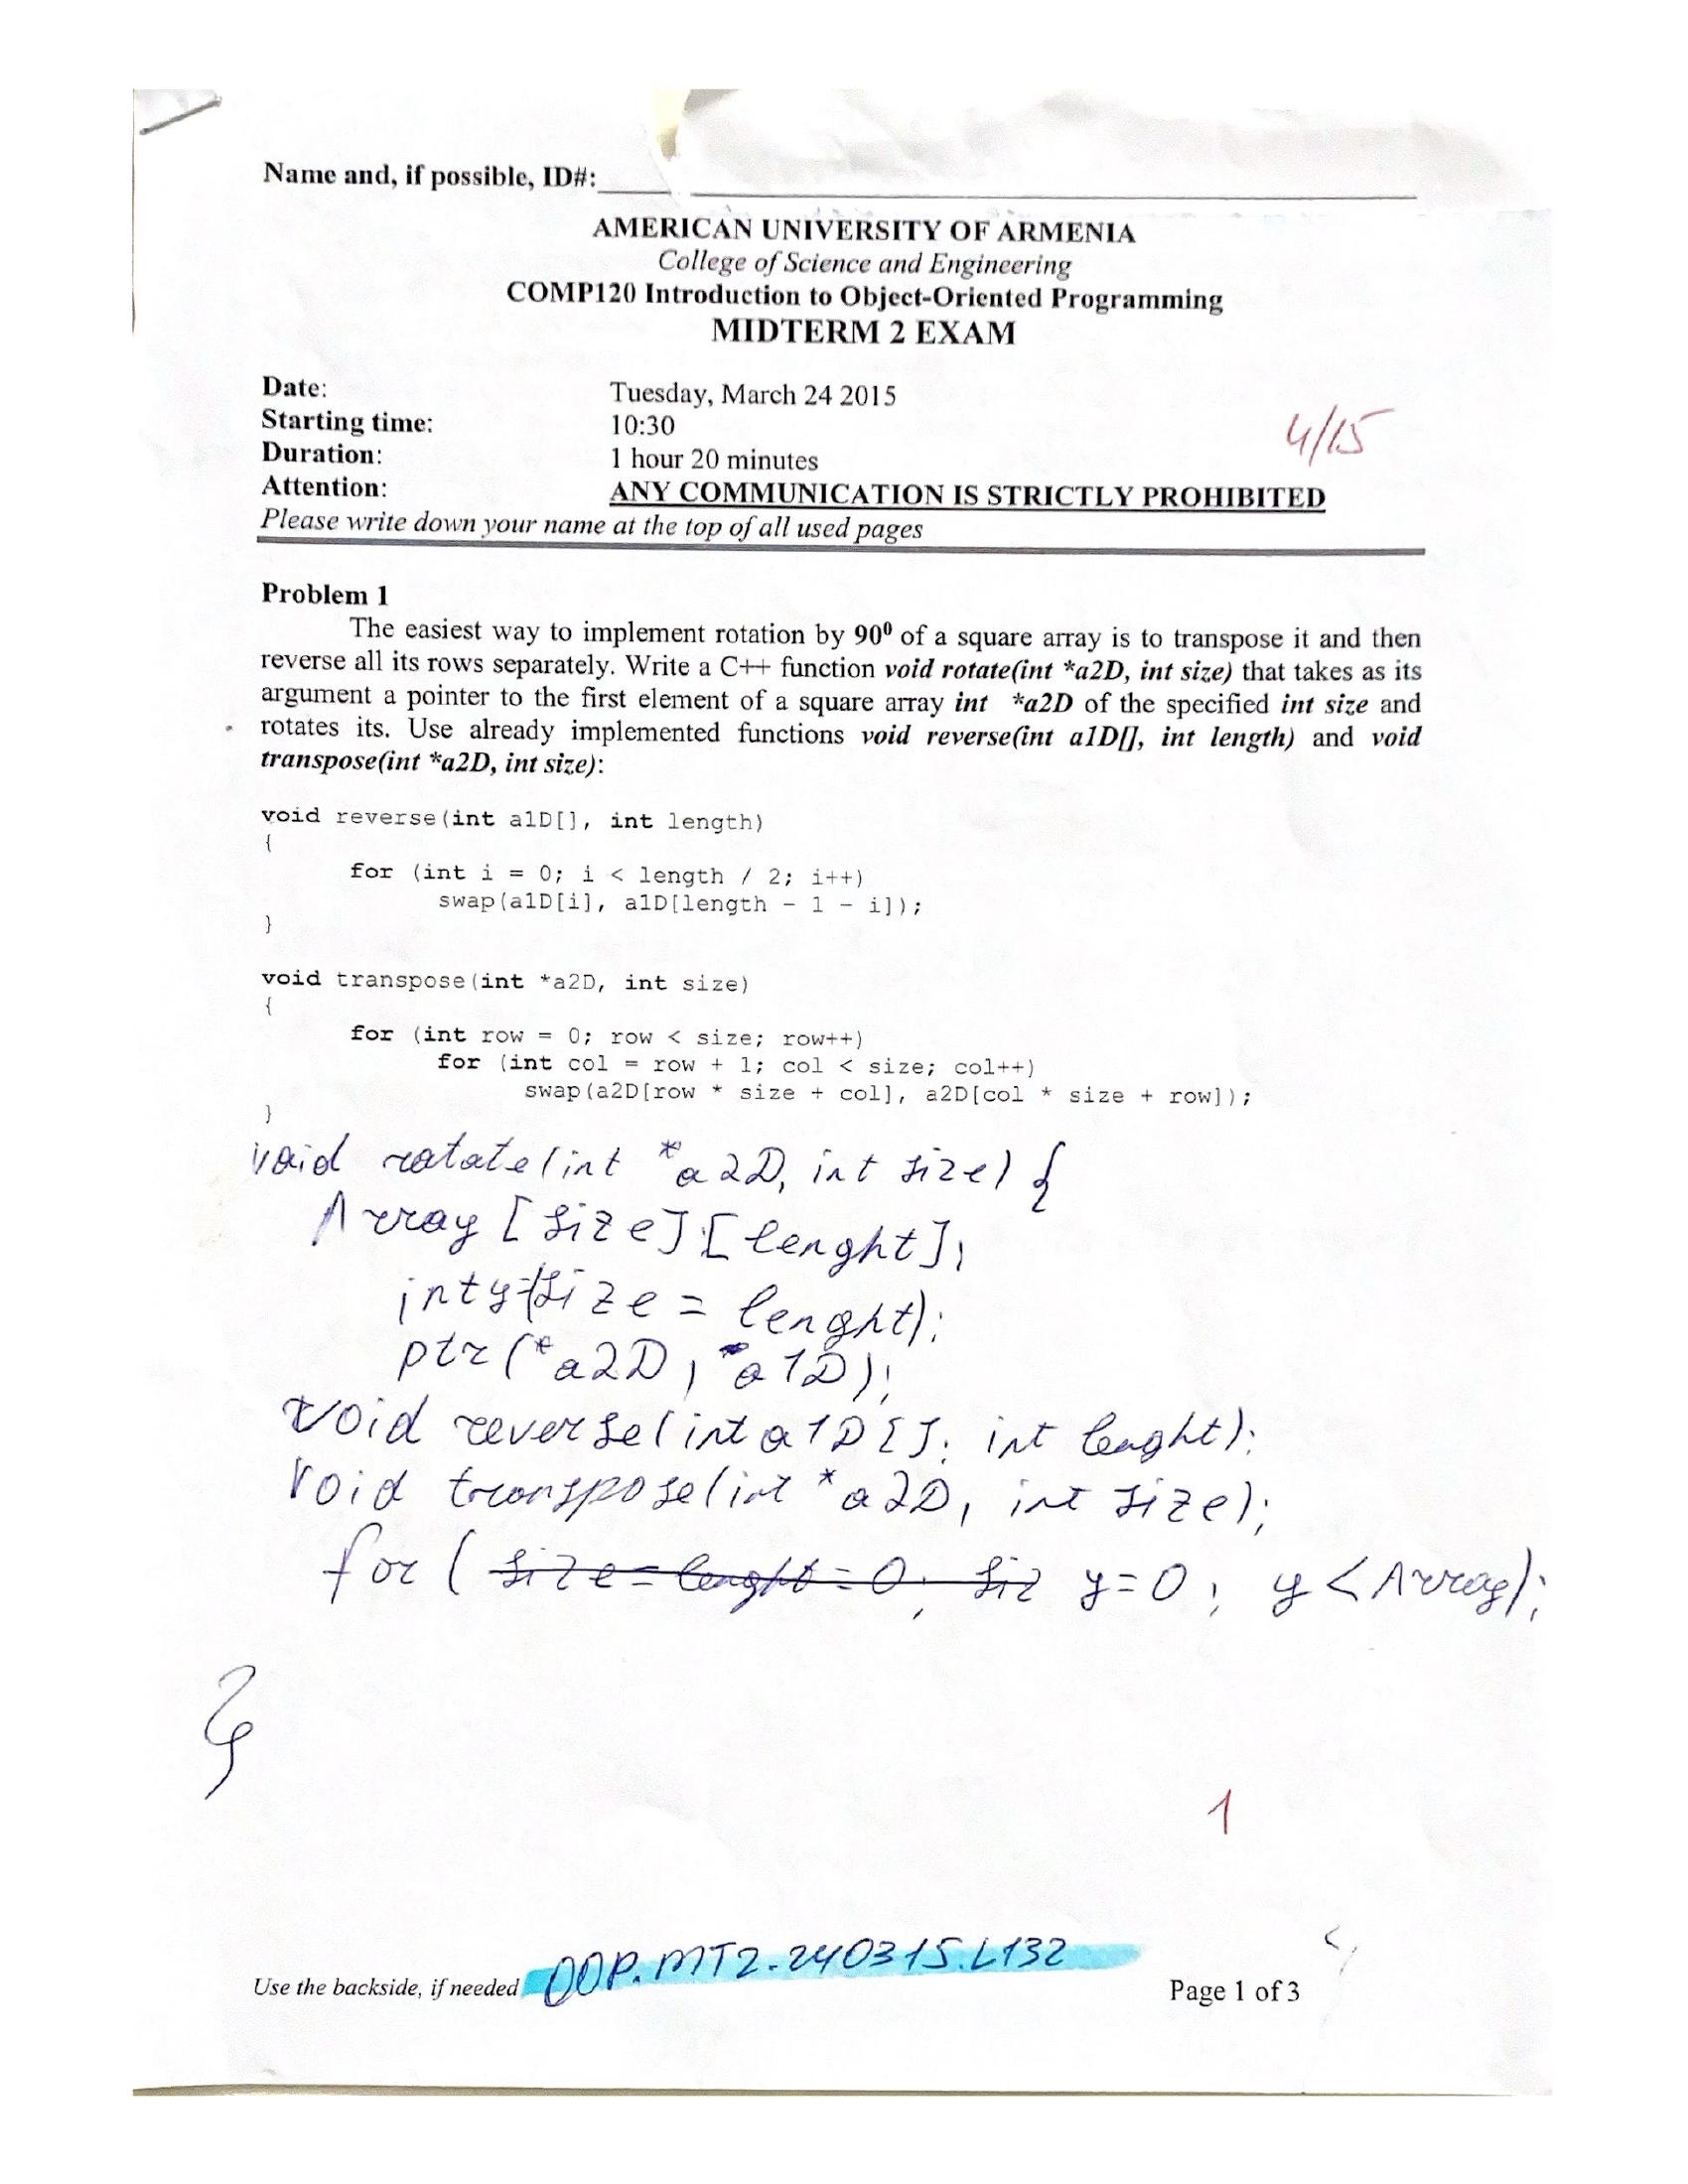 Name and, if possible, ID#:
AMERICAN UNIVERSITY OF ARMENIA
College of Science and Engineering
COMP120 Introduction to Object-Oriented Programming
MIDTERM 2 EXAM
Date: Tuesday, March 24 2015
4/15
Starting time: 10:30
Duration: 1 hour 20 minutes
Attention: ANY COMMUNICATION IS STRICTLY PROHIBITED
Please write down your name at the top of all used pages
Problem 1
The easiest way to implement rotation by 90⁰ of a square array is to transpose it and then
reverse all its rows separately. Write a C++ function void rotate(int *a2D, int size) that takes as its
argument a pointer to the first element of a square array int *a2D of the specified int size and
rotates its. Use already implemented functions void reverse(int a1D[], int length) and void
transpose(int *a2D, int size):
void reverse(int a1D[], int length)
{
for (int i = 0; i < length / 2; i++)
swap(a1D[i], a1D[length - 1 - i]);
}
void transpose(int *a2D, int size)
{
for (int row = 0; row < size; row++)
for (int col = row + 1; col < size; col++)
swap(a2D[row * size + col], a2D[col * size + row]);
}
void rotate(int *a2D, int size) {
Array [size][lenght];
int y=(size = lenght);
ptr(*a2D, *a1D);
void reverse(int a1D[]; int lenght);
void transpose(int *a2D, int size);
for ( size = lenght = 0; siz y=0; y < Array);
}
1
Use the backside, if needed OOP.MT2.240315.L132 Page 1 of 3